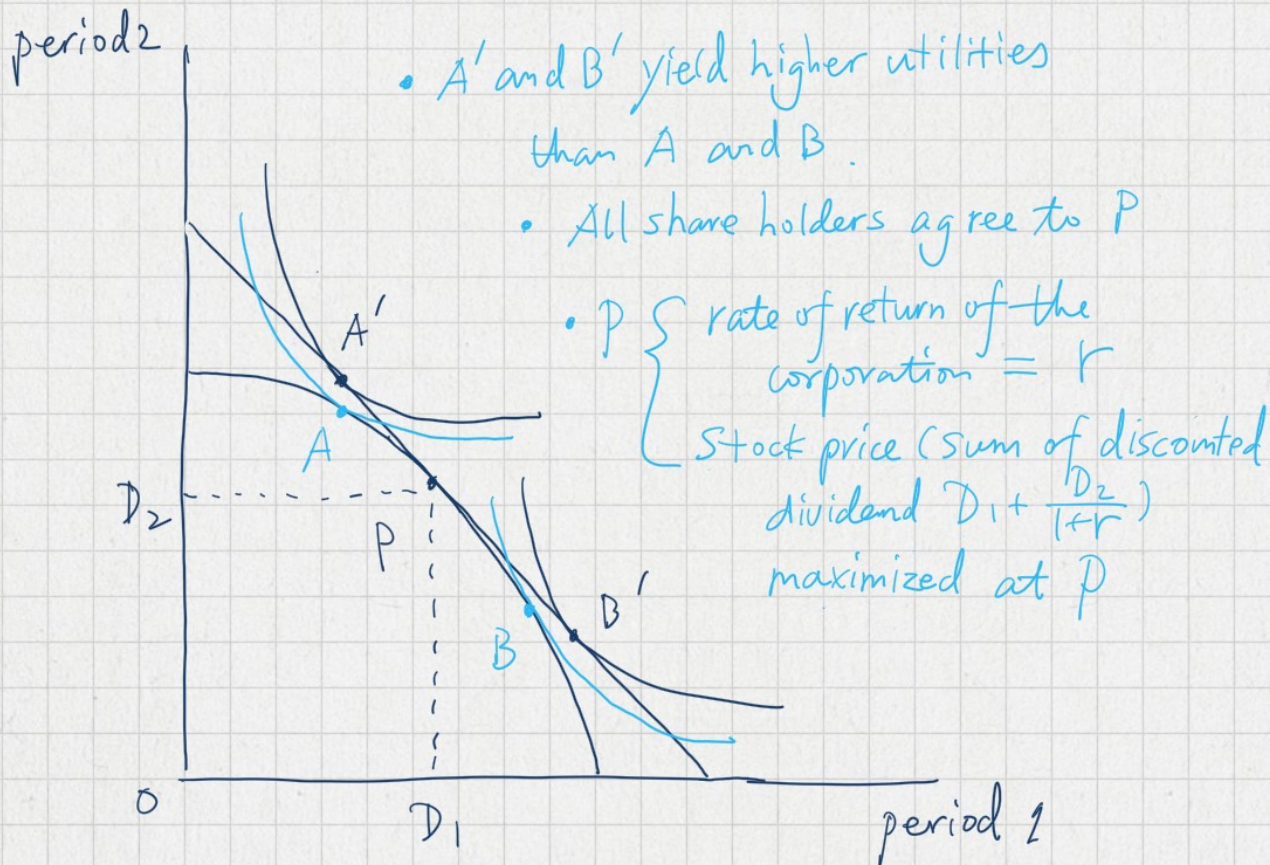 period2
• A' and B' yield higher utilities
than A and B.
• All share holders agree to P
• P { rate of return of the
corporation = r
Stock price (sum of discounted
dividend D₁ + D₂/1+r)
maximized at P
A'
A
D₂
P
B'
B
0
D₁
period 1